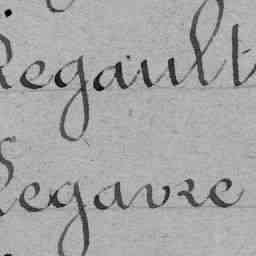 Regault
Segavre